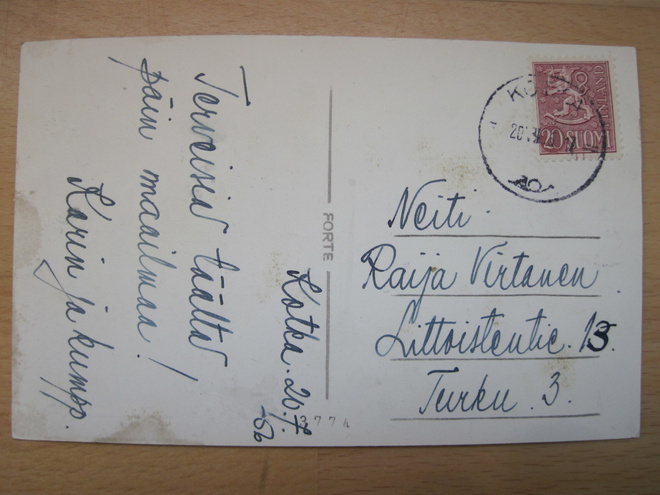 Terveisiä täältä
päin maailmaa!
Karin ja kumpp.
Kotka. 20.7
-56
FORTE
3774
KOTKA
20 SUOMI
Neiti.
Raija Virtanen
Littoistentie. 13.
Turku. 3.